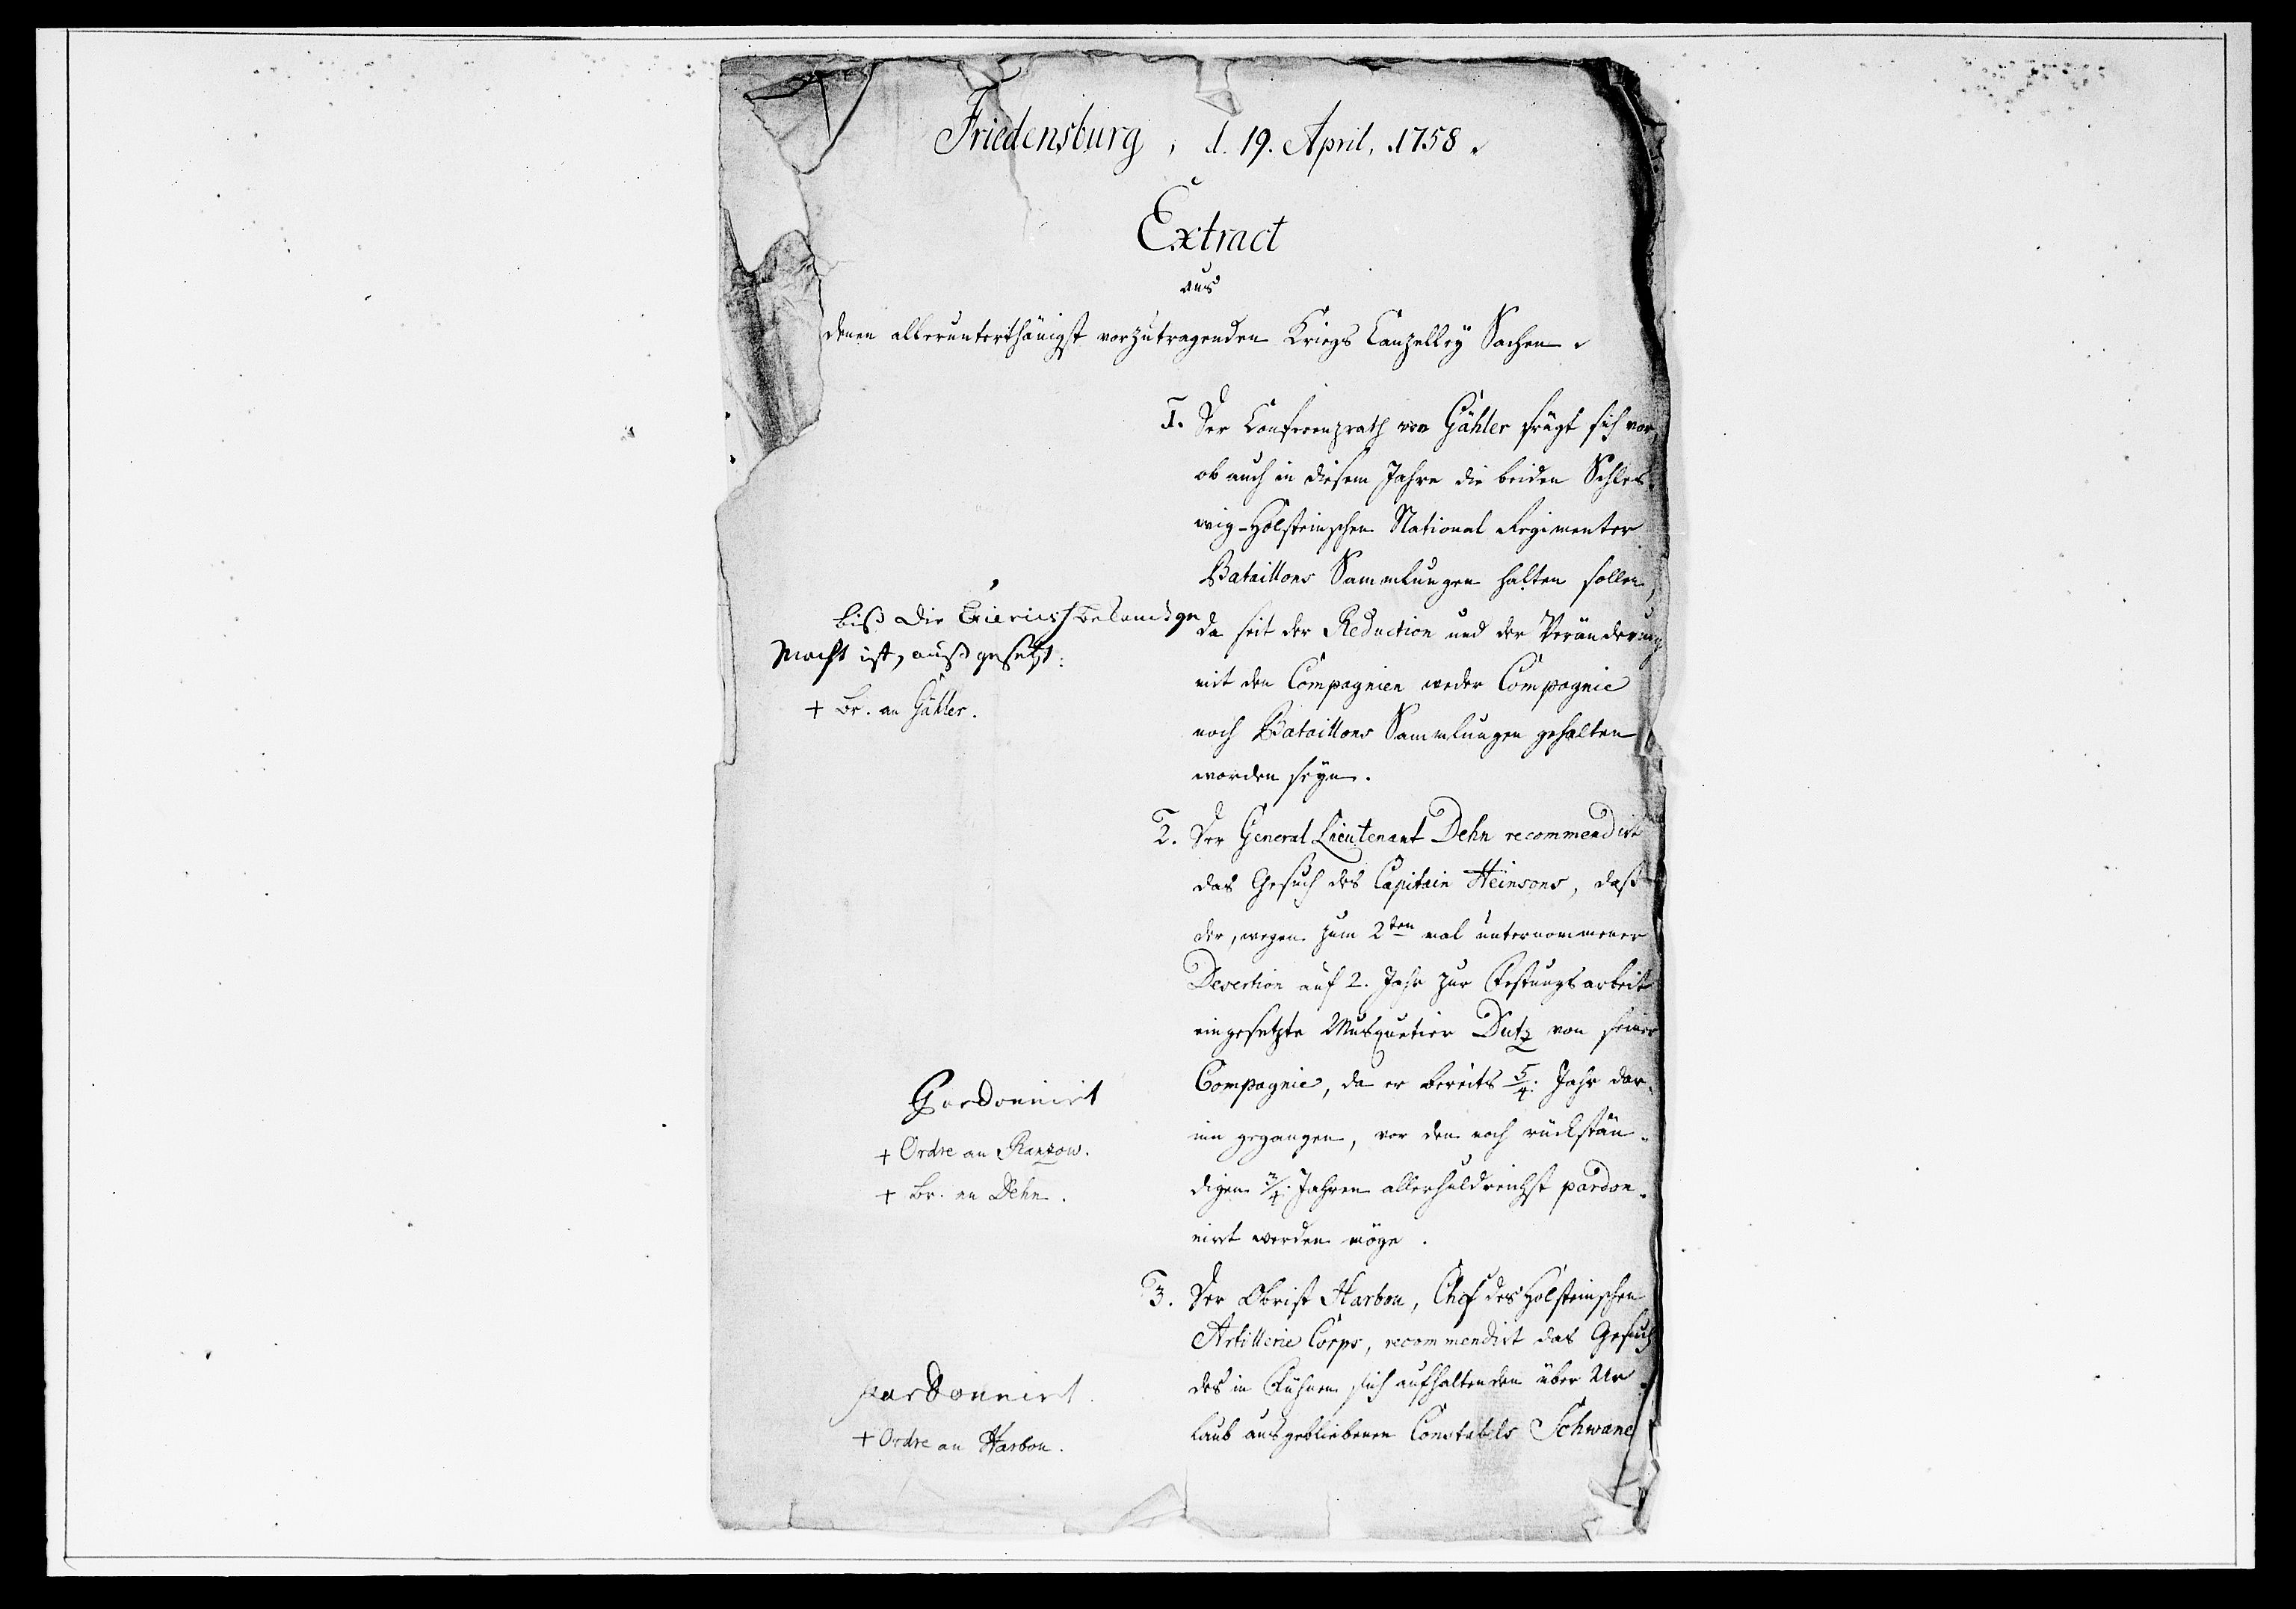 Friedensburg, d. 19. April, 1758.
Extract
aus
denen allerunterthänigst vorzutragenden Kriegs Canzelley Sachen.
1. Der Conferenzrath von Gähler frägt sich vor,
ob auch in diesem Jahre die beiden Schles-
wig-Holsteinschen National Regimenter
Bataillons Sammlungen halten sollen,
da seit der Reduction und der Veränderung
mit den Compagnien weder Compagnie
noch Bataillons Sammlungen gehalten
worden seyn.
biß die
Macht ist, auß gesetzt:
+ Br. an Gähler.
2. Der General Lieutenant Dehn recommendirt
das Gesuch des Capitain Heinsons, daß
der, wegen zum 2ten mal unternommener
Desertion auf 2. Jahr zur Festungsarbeit
eingesetzte Musquetier Dutz von seiner
Compagnie, da er bereits 5/4. Jahr dar-
inn gegangen, vor den noch rückstän-
digen 3/4. Jahren allerhuldreichst pardon-
nirt werden möge.
Pardonnirt
+ Ordre an Ranzow.
+ Br. an Dehn.
3. Der Obrist Harbou, Chef des Holsteinschen
Artillerie Corps, recommendirt das Gesuch
des in Fühnen sich aufhaltenden über Ur-
laub ausgebliebenen Constabels Schwane
pardonnirt.
+ Ordre an Harbou.